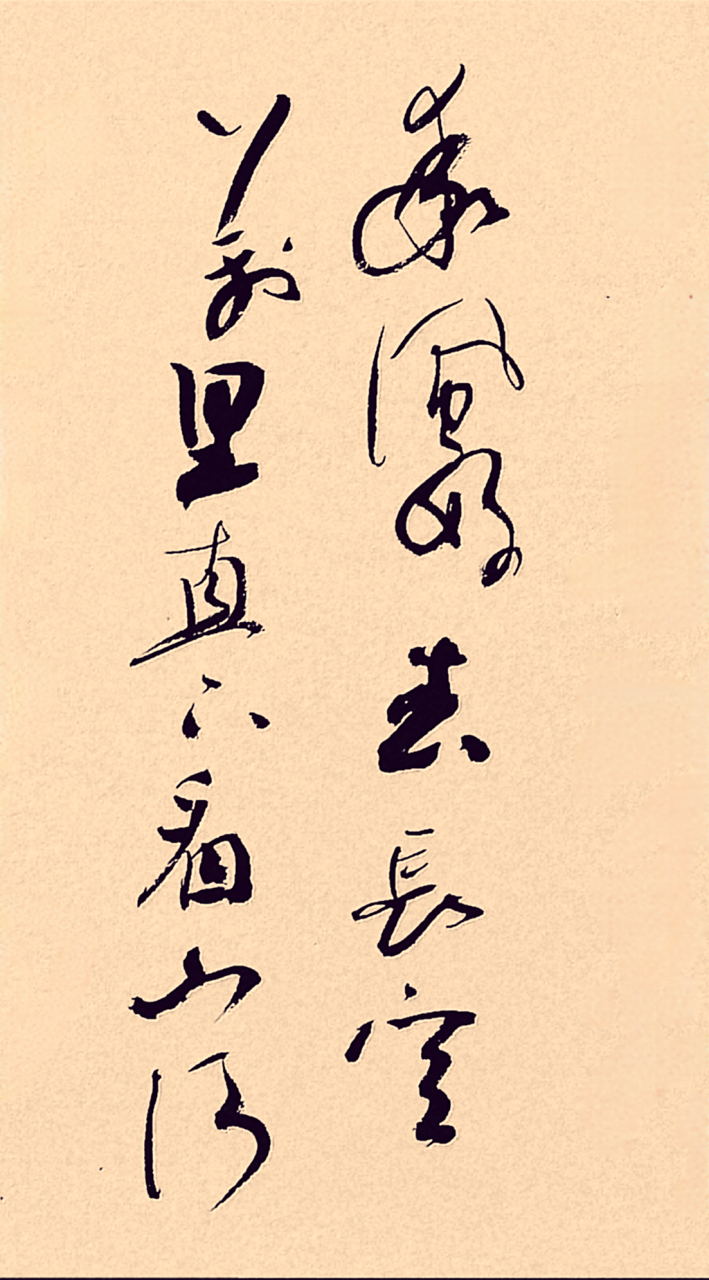 乘風好去長空
萬里直下看山河